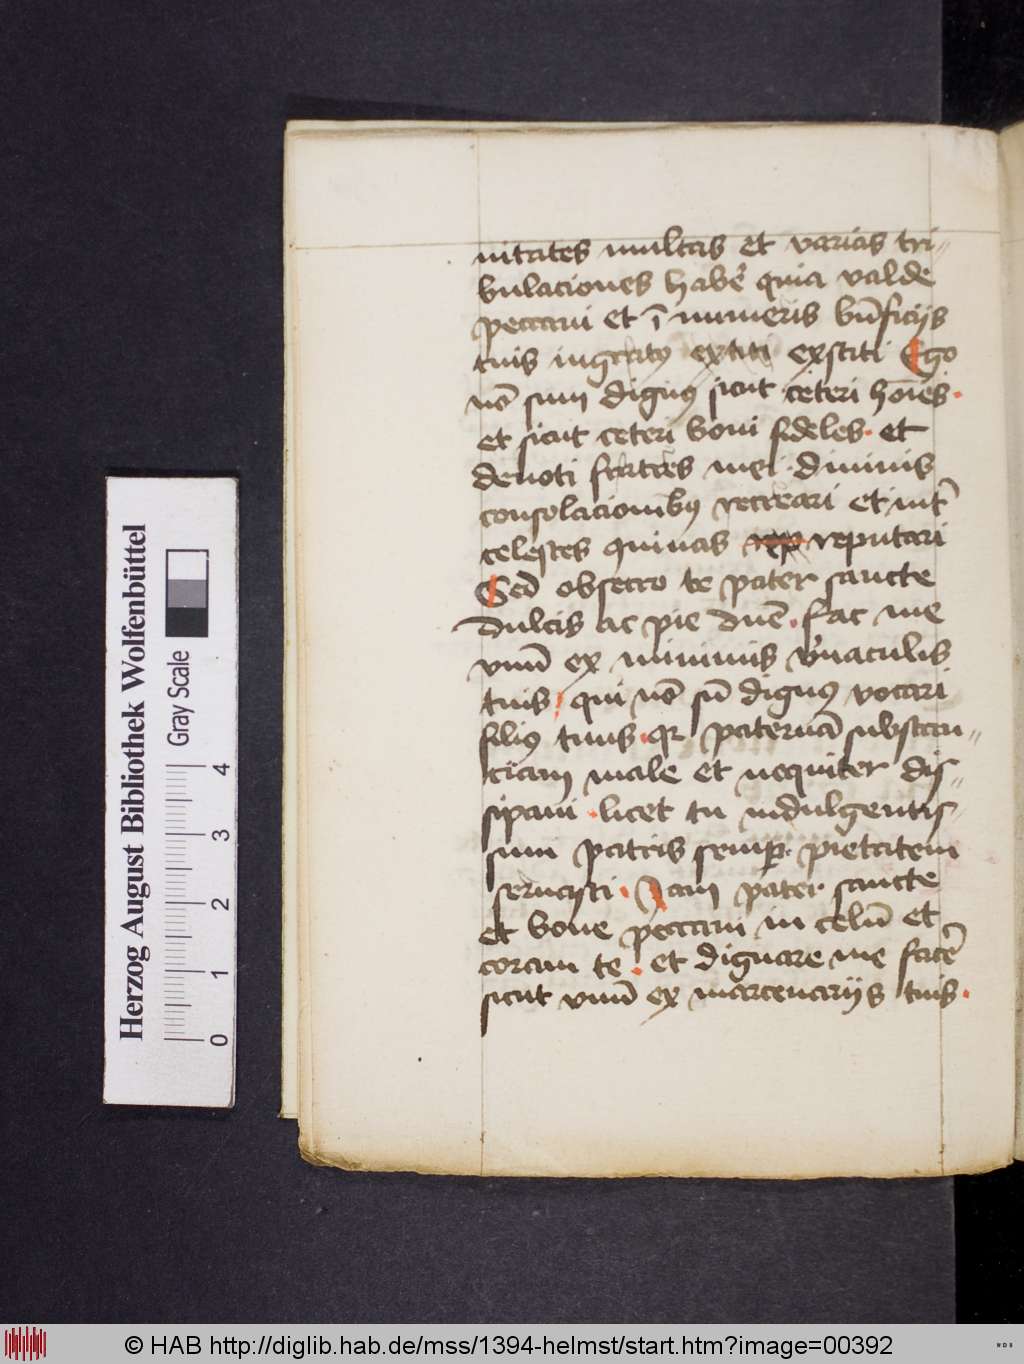 nitates multas et varias tri〃
bulaciones habe͛ quia valde
peccaui et ī numeris bn̄ficijs
tuis ingratꝰ extiti exstiti Ego
nō sum dignꝰ sicut ceteri hoīes.
et sicut ceteri boni fideles. et
deuoti fratres mei. diuinis
consolacionibꝰ recreari et int͛
celestes quiuas rep reputari
Sed obsecro te pater sancte
dulcis ac pie dn̄e. fac me
vnū ex minimis v͛naculis
tuis: qui nō sū dignꝰ vocari
filiꝰ tuus. qr paternā substan〃
ciam male et nequiter dis〃
sipaui. licet tu indulgentis〃
simi patris semꝑ. pietatem
seruasti. Nam pater sancte
et bone peccaui in celū et
coram te. et dignare me face͛
sicut vnū ex mercenarijs tuis.
Herzog August Bibliothek Wolfenbüttel
Gray Scale
0 1 2 3 4
© HAB http://diglib.hab.de/mss/1394-helmst/start.htm?image=00392